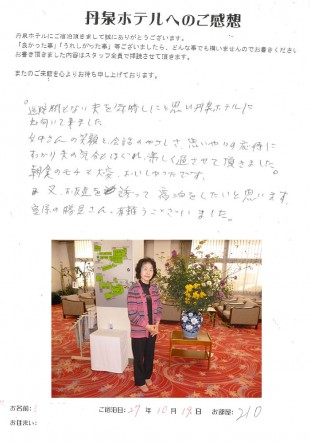 丹泉ホテルへのご感想
丹泉ホテルにご宿泊頂きまして誠にありがとうございます。
「良かった事」「うれしかった事」等ございましたら、どんな事でも構いませんのでお書きください
お書き頂きました内容はスタッフ全員で拝読させて頂きます。
またのご来館を心よりお待ち申し上げております。
思い丹泉ホテルに
出向いて来ました
女中さんの笑顔と会話のやさしさ、思いやりの
気分もほぐれ、楽しく過させて頂きました。
朝食のモチと大変おいしかったです。
又、お友達を誘って宿泊をしたいと思います。
さん、有難うございました。
お名前:
ご宿泊日: 27 年 10 月 19 日 お部屋: 210
お住まい: